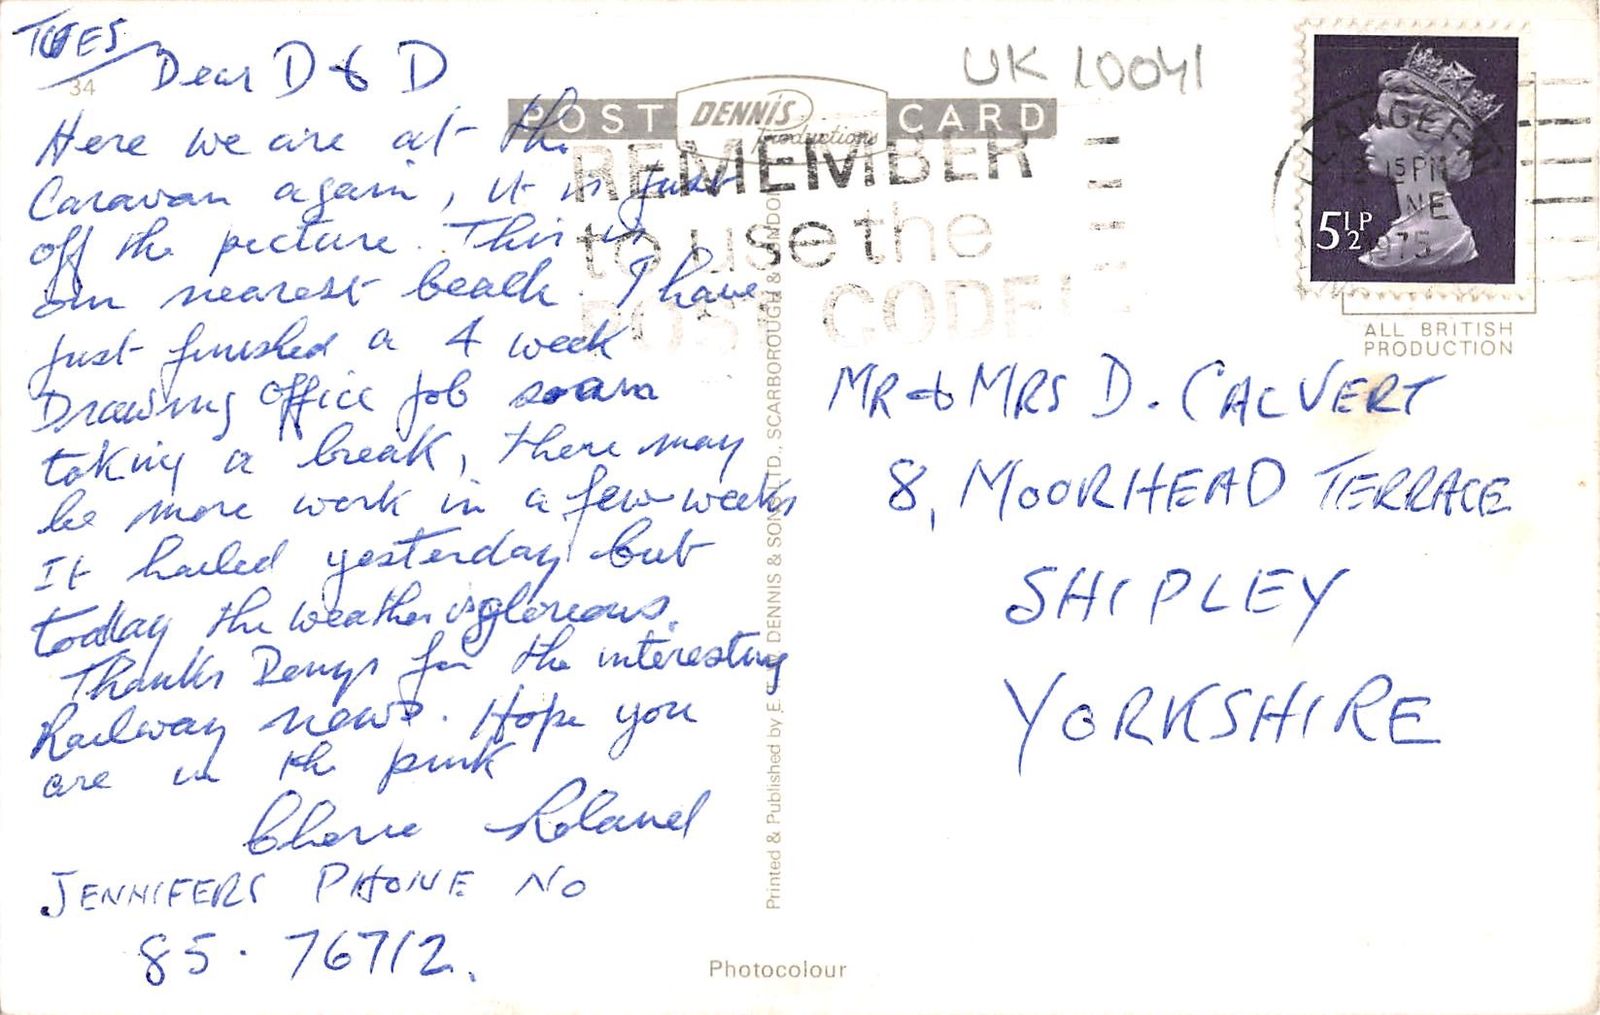 TUES
34
Dear D & D
Here we are at the
Caravan again, it is just
off the picture. This is
our nearest beach. I have
just finished a 4 week
Drawing office job so am
taking a break, there may
be more work in a few weeks
It hailed yesterday but
today the weather is glorious.
Thanks Denys for the interesting
Railway news. Hope you
are in the pink
Roland
JENNIFERS PHONE NO
85. 76712.
UK 10041
POST CARD
DENNIS
Productions
REMEMBER
to use the
POST CODE!
15 PM
NE
1975
5½P
ALL BRITISH
PRODUCTION
MR & MRS D. CALVERT
8, MOORHEAD TERRACE
SHIPLEY
YORKSHIRE
Printed & Published by E. T. W. DENNIS & SONS LTD., SCARBOROUGH & LONDON
Photocolour